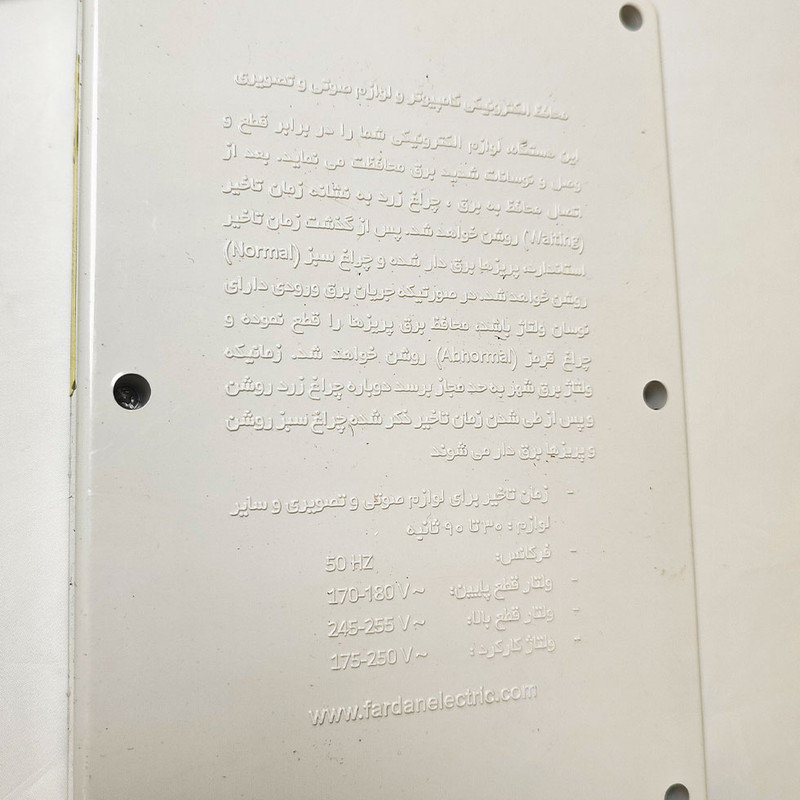 محافظ الکترونیکی کامپیوتر و لوازم صوتی و تصویری
این دستگاه، لوازم الکترونیکی شما را در برابر قطع و
وصل و نوسانات شدید برق محافظت می نماید. بعد از
اتصال محافظ به برق ، چراغ زرد به نشانه زمان تاخیر
(Waiting) روشن خواهد شد. پس از گذشت زمان تاخیر
استاندارد، پریزها برق دار شده و چراغ سبز (Normal)
روشن خواهد شد. در صورتیکه جریان برق ورودی دارای
نوسان ولتاژ باشد، محافظ برق پریزها را قطع نموده و
چراغ قرمز (Abnormal) روشن خواهد شد. زمانیکه
ولتاژ برق شهر به حد مجاز برسد دوباره چراغ زرد روشن
و پس از طی شدن زمان تاخیر ذکر شده چراغ سبز روشن
و پریزها برق دار می شوند
- زمان تاخیر برای لوازم صوتی و تصویری و سایر
لوازم : ۳۰ تا ۹۰ ثانیه
- فرکانس: 50 HZ
- ولتاژ قطع پایین: 170-180 V~
- ولتاژ قطع بالا: 245-255 V~
- ولتاژ کارکرد : 175-250 V~
www.fardanelectric.com